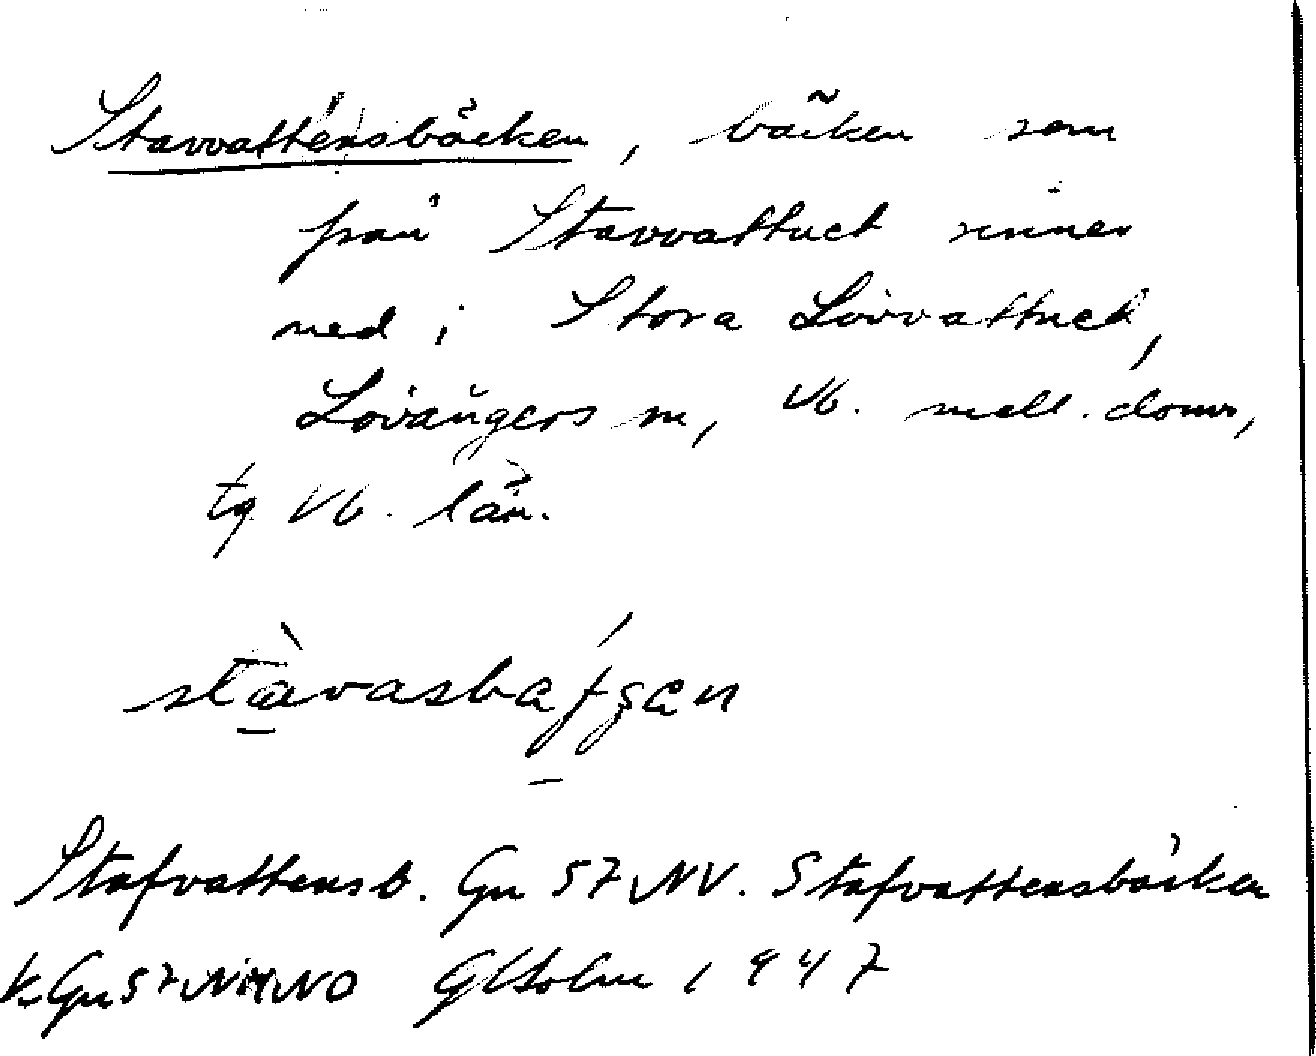 Stavvattensbäcken, bäcken som
från Stavvattnet rinner
ned i Stora Lövvattnet,
Lövångers sn, Vb. mell. doms,
tg Vb. län.
stàvasbaʃʂan
Stafvattensb. Gn 57 NV. Stafvattensbäcken
k. Gn 57 NO GHolm 1947